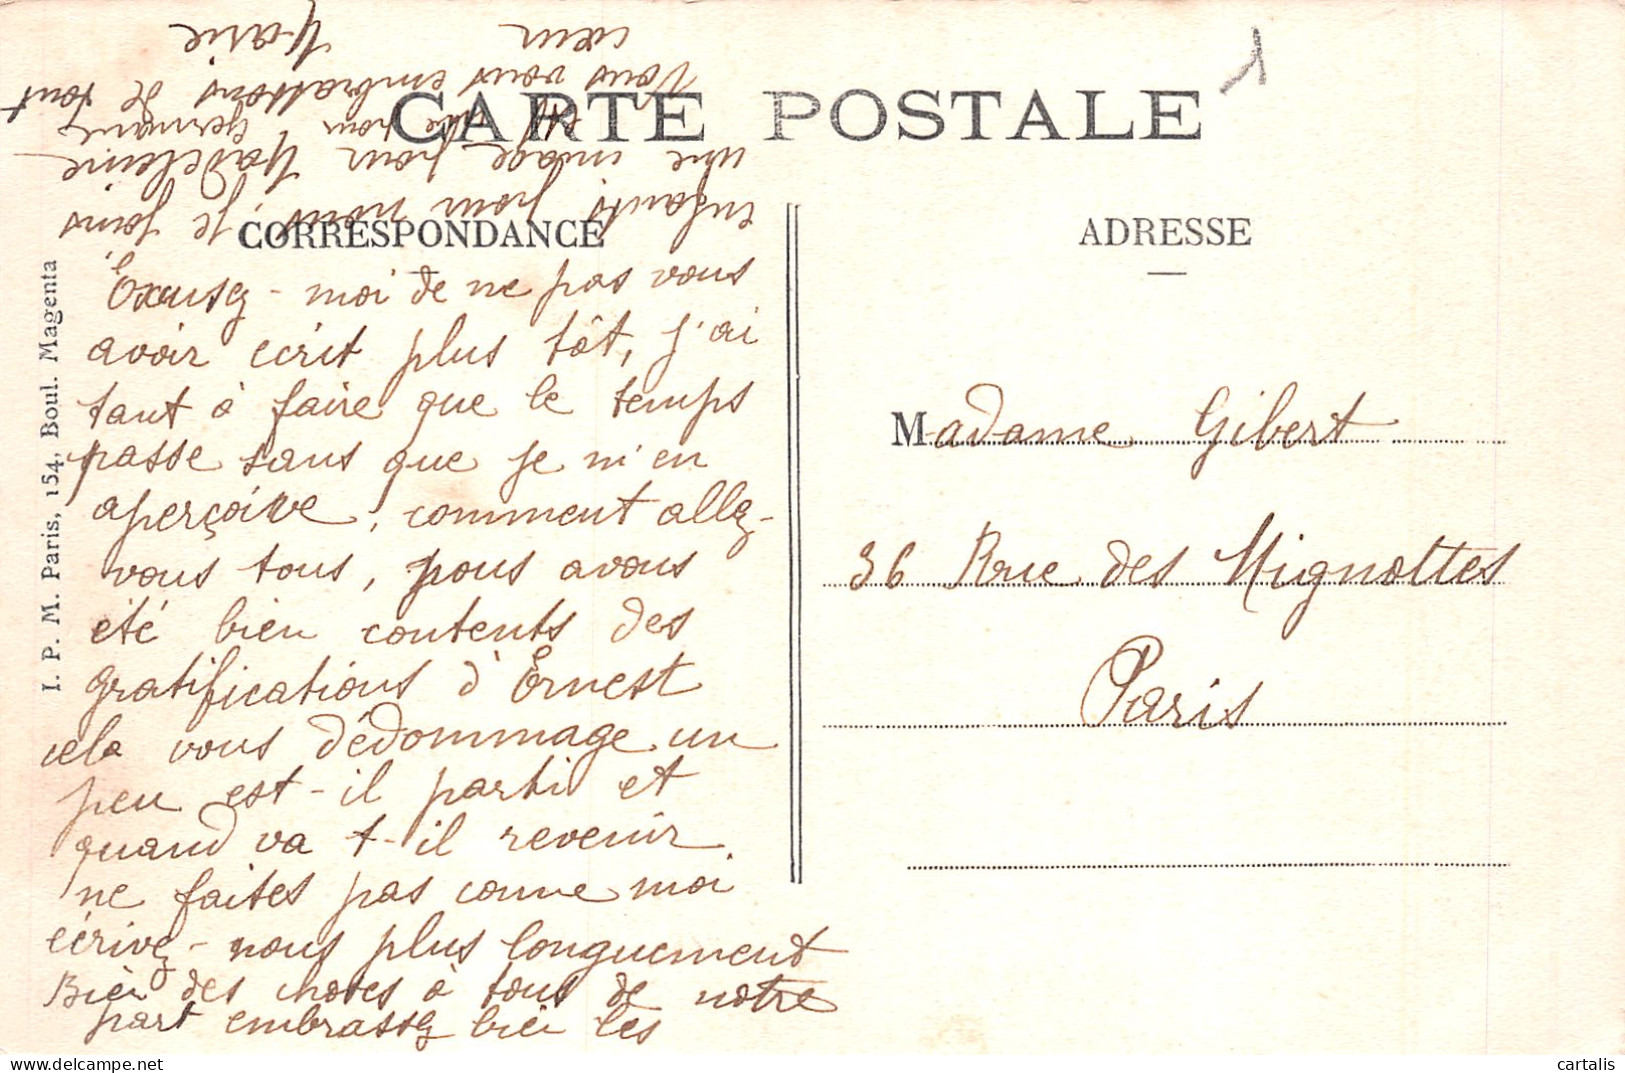 CARTE POSTALE
CORRESPONDANCE
ADRESSE
I. P. M. Paris, 154, Boul. Magenta
Excusez-moi de ne pas vous
avoir écrit plus tôt, j'ai
tant à faire que le temps
passe sans que je m'en
aperçoive, comment allez-
vous tous, nous avons
été bien contents des
gratifications d'Ernest
cela vous dédommage un
peu est-il parti et
quand va t-il revenir
ne faites pas comme moi
écrivez-nous plus longuement
Bien des choses à tous de notre
part embrassez bien les
enfants pour nous, je joins
une image pour Madeleine
et pour Germaine
Nous vous embrassons de tout
cœur Marie
Madame Gibert
36 Rue des Mignottes
Paris
1
cartalis